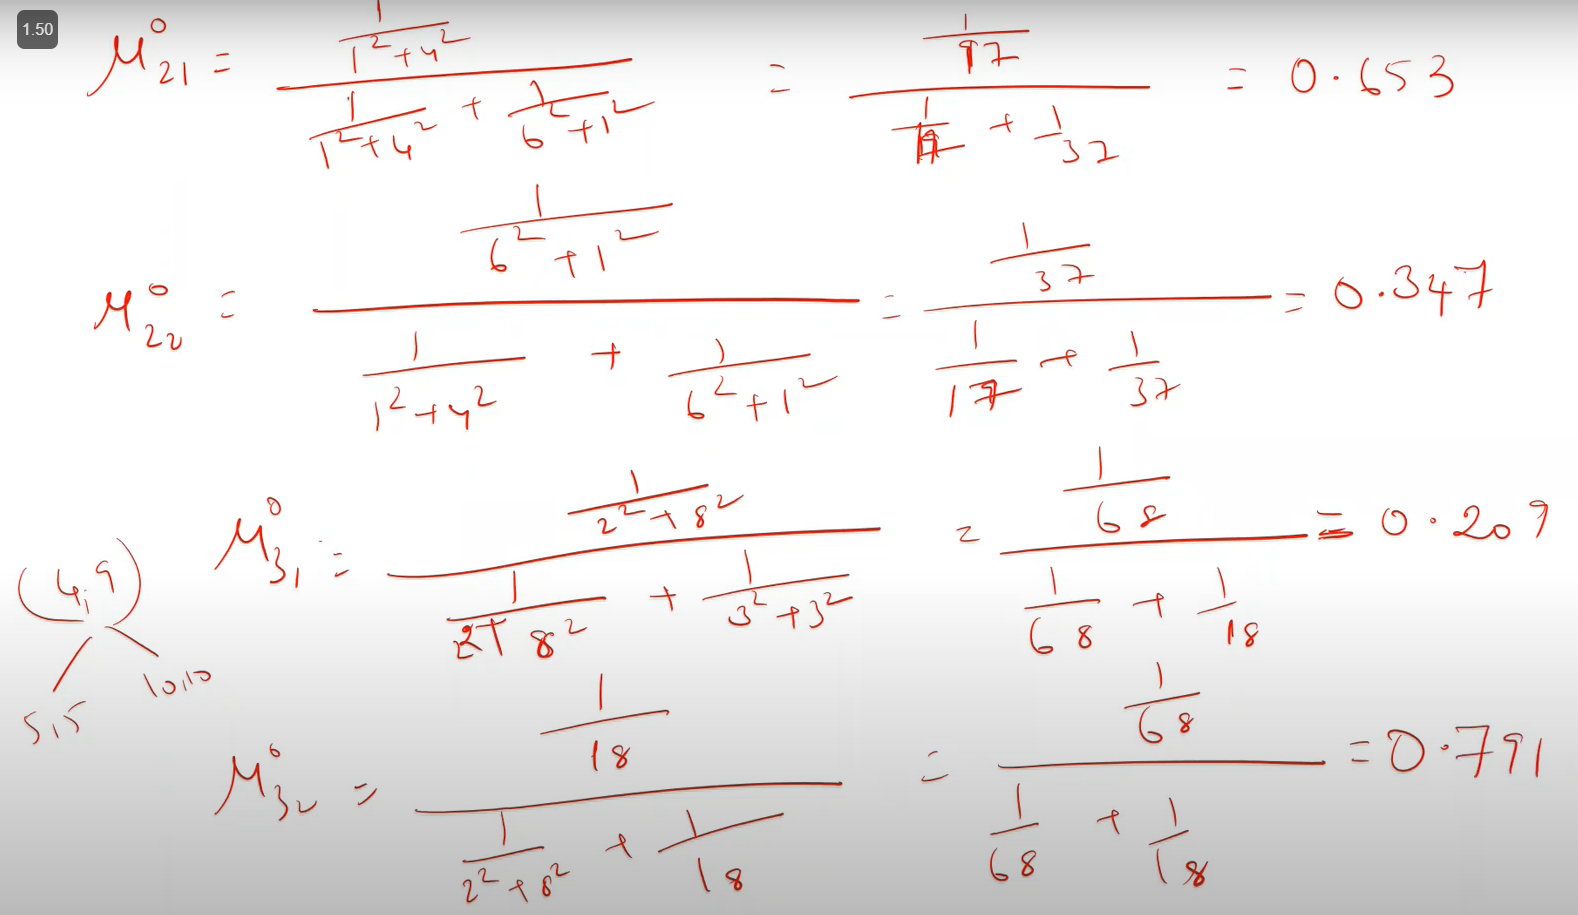 1.50
μ⁰₂₁ = (1/(1²+4²)) / (1/(1²+4²) + 1/(6²+1²)) = (1/17) / (1/17 + 1/37) = 0.653
μ⁰₂₂ = (1/(6²+1²)) / (1/(1²+4²) + 1/(6²+1²)) = (1/37) / (1/17 + 1/37) = 0.347
μ⁰₃₁ = (1/(2²+8²)) / (1/(2²+8²) + 1/(3²+3²)) = (1/68) / (1/68 + 1/18) = 0.209
(4,9)
5,5 10,10
μ⁰₃₂ = (1/18) / (1/(2²+8²) + 1/18) = (1/68) / (1/68 + 1/18) = 0.791